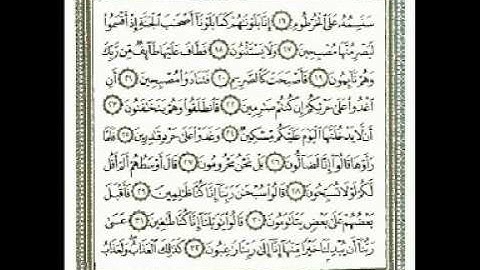 سَنَسِمُهُۥ عَلَى ٱلْخُرْطُومِ ١٦ إِنَّا بَلَوْنَٰهُمْ كَمَا بَلَوْنَآ أَصْحَٰبَ ٱلْجَنَّةِ إِذْ أَقْسَمُوا۟
لَيَصْرِمُنَّهَا مُصْبِحِينَ ١٧ وَلَا يَسْتَثْنُونَ ١٨ فَطَافَ عَلَيْهَا طَآئِفٌ مِّن رَّبِّكَ
وَهُمْ نَآئِمُونَ ١٩ فَأَصْبَحَتْ كَٱلصَّرِيمِ ٢٠ فَتَنَادَوْا۟ مُصْبِحِينَ ٢١ أَنِ
ٱغْدُوا۟ عَلَىٰ حَرْثِكُمْ إِن كُنتُمْ صَٰرِمِينَ ٢٢ فَٱنطَلَقُوا۟ وَهُمْ يَتَخَٰفَتُونَ ٢٣
أَن لَّا يَدْخُلَنَّهَا ٱلْيَوْمَ عَلَيْكُم مِّسْكِينٌ ٢٤ وَغَدَوْا۟ عَلَىٰ حَرْدٍ قَٰدِرِينَ ٢٥ فَلَمَّا
رَأَوْهَا قَالُوٓا۟ إِنَّا لَضَآلُّونَ ٢٦ بَلْ نَحْنُ مَحْرُومُونَ ٢٧ قَالَ أَوْسَطُهُمْ أَلَمْ أَقُل
لَّكُمْ لَوْلَا تُسَبِّحُونَ ٢٨ قَالُوا۟ سُبْحَٰنَ رَبِّنَآ إِنَّا كُنَّا ظَٰلِمِينَ ٢٩ فَأَقْبَلَ
بَعْضُهُمْ عَلَىٰ بَعْضٍ يَتَلَٰوَمُونَ ٣٠ قَالُوا۟ يَٰوَيْلَنَآ إِنَّا كُنَّا طَٰغِينَ ٣١ عَسَىٰ
رَبُّنَآ أَن يُبْدِلَنَا خَيْرًا مِّنْهَآ إِنَّآ إِلَىٰ رَبِّنَا رَٰغِبُونَ ٣٢ كَذَٰلِكَ ٱلْعَذَابُ وَلَعَذَابُ